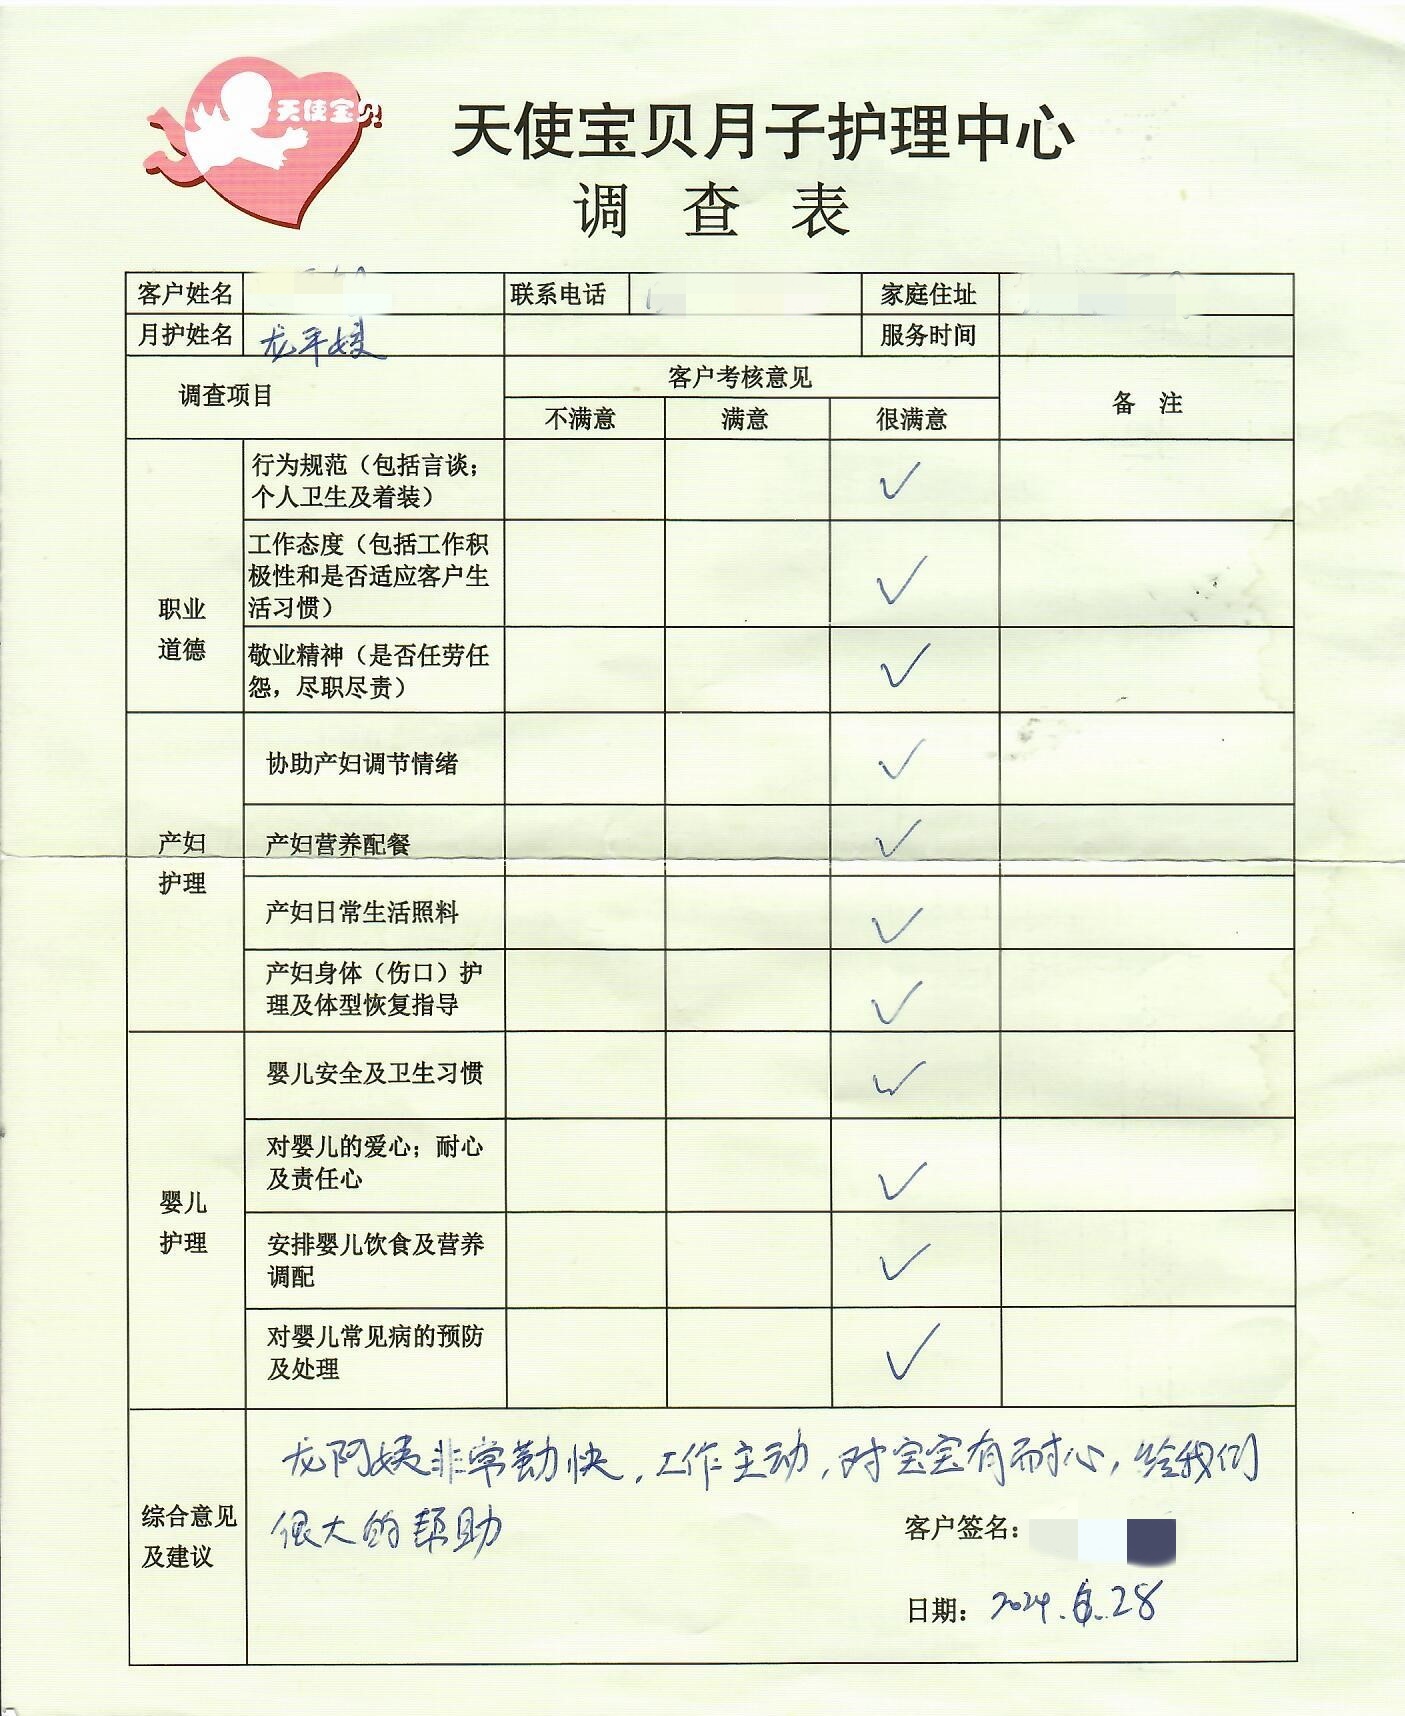 天使宝贝
天使宝贝月子护理中心
调 查 表
客户姓名 联系电话 家庭住址
月护姓名 龙平姨 服务时间
调查项目 客户考核意见 备 注
不满意 满意 很满意
职业
道德
行为规范（包括言谈；
个人卫生及着装）
✓
工作态度（包括工作积
极性和是否适应客户生
活习惯）
✓
敬业精神（是否任劳任
怨，尽职尽责）
✓
产妇
护理
协助产妇调节情绪 ✓
产妇营养配餐 ✓
产妇日常生活照料 ✓
产妇身体（伤口）护
理及体型恢复指导
✓
婴儿
护理
婴儿安全及卫生习惯 ✓
对婴儿的爱心；耐心
及责任心
✓
安排婴儿饮食及营养
调配
✓
对婴儿常见病的预防
及处理
✓
综合意见
及建议
龙阿姨非常勤快，工作主动，对宝宝有耐心，给我们
很大的帮助
客户签名：
日期：2024.6.28